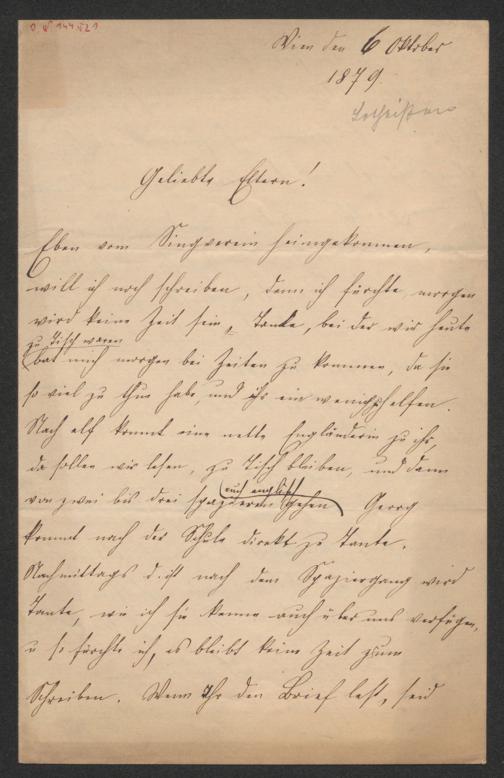 Wien den 6 Oktober
1879.
Geliebte Eltern!
Eben vom Singverein heimgekommen,
will ich noch schreiben, denn ich fürchte morgen
wird keine Zeit sein, Tante, bei der wir heute
zu Tisch waren
bat mich morgen bei Zeiten zu kommen, da sie
so viel zu thun habe, und ihr ein wenig helfen.
Nach elf kommt eine nette Engländerin zu ihr,
da sollen wir lesen, zu Tisch bleiben, und dann
auch englisch
von zwei bis drei spazieren gehen Georg
kommt nach der Schule direkt zu Tante.
Nachmittags d. ist nach dem Spaziergang wird
Tante, wie ich sie kenne auch über uns verfügen,
u so fürchte ich, es bleibt keine Zeit zum
Schreiben. Wenn Ihr den Brief lest, seid